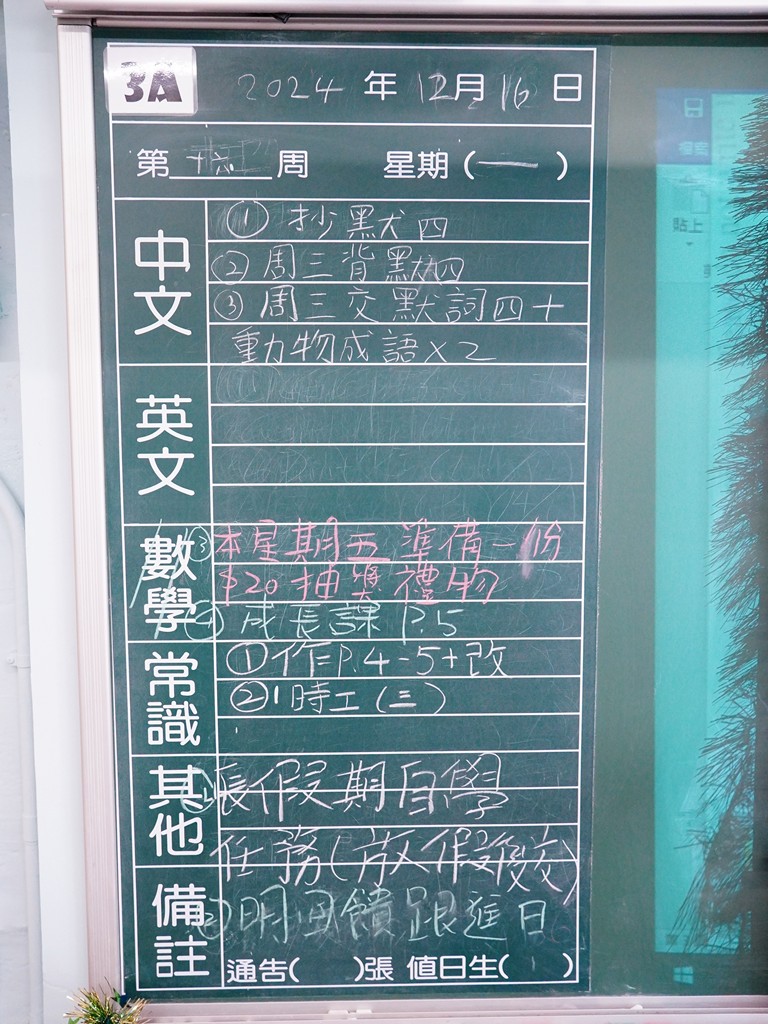 3A 2024 年 12 月 16 日
第 十六 周 星期(一)
中文
① 抄默四
② 周三背默四
③ 周三交默詞四+
動物成語×2
英文
數學
③ 本星期五準備一份
$20抽獎禮物
④ 成長課 P.5
常識
① 作P.4-5+改
② 時工(三)
其他
長假期自學
任務(放假後交)
備註
明回饋跟進日
通告( )張 值日生( )
貼上